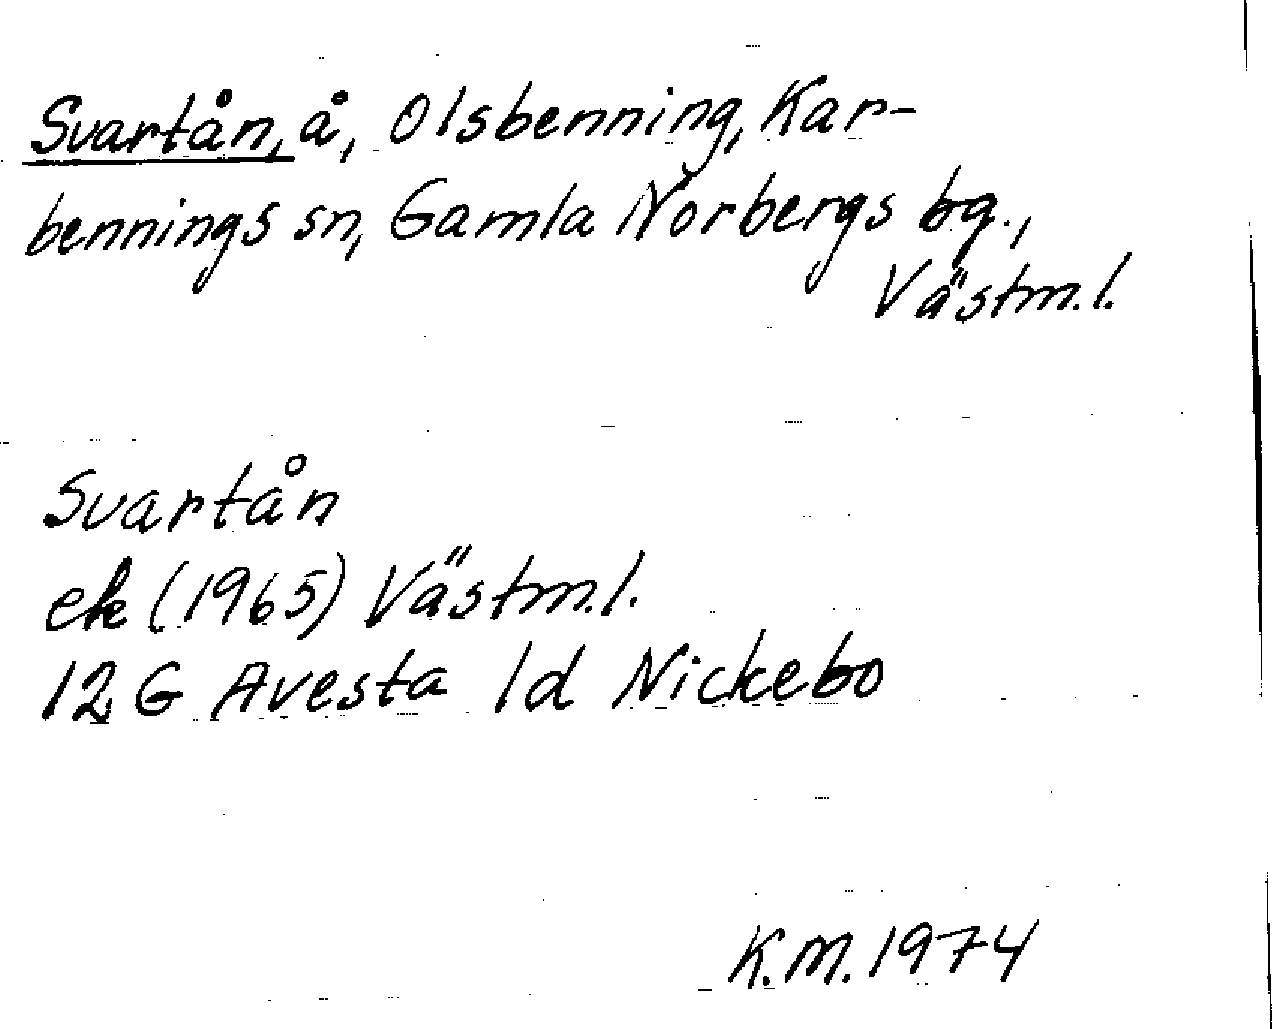 Svartån, å, Olsbenning, Kar-
bennings sn, Gamla Norbergs bg.,
Västm.l.
Svartån
ek (1965) Västm.l.
12 G Avesta 1d Nickebo
K.M. 1974